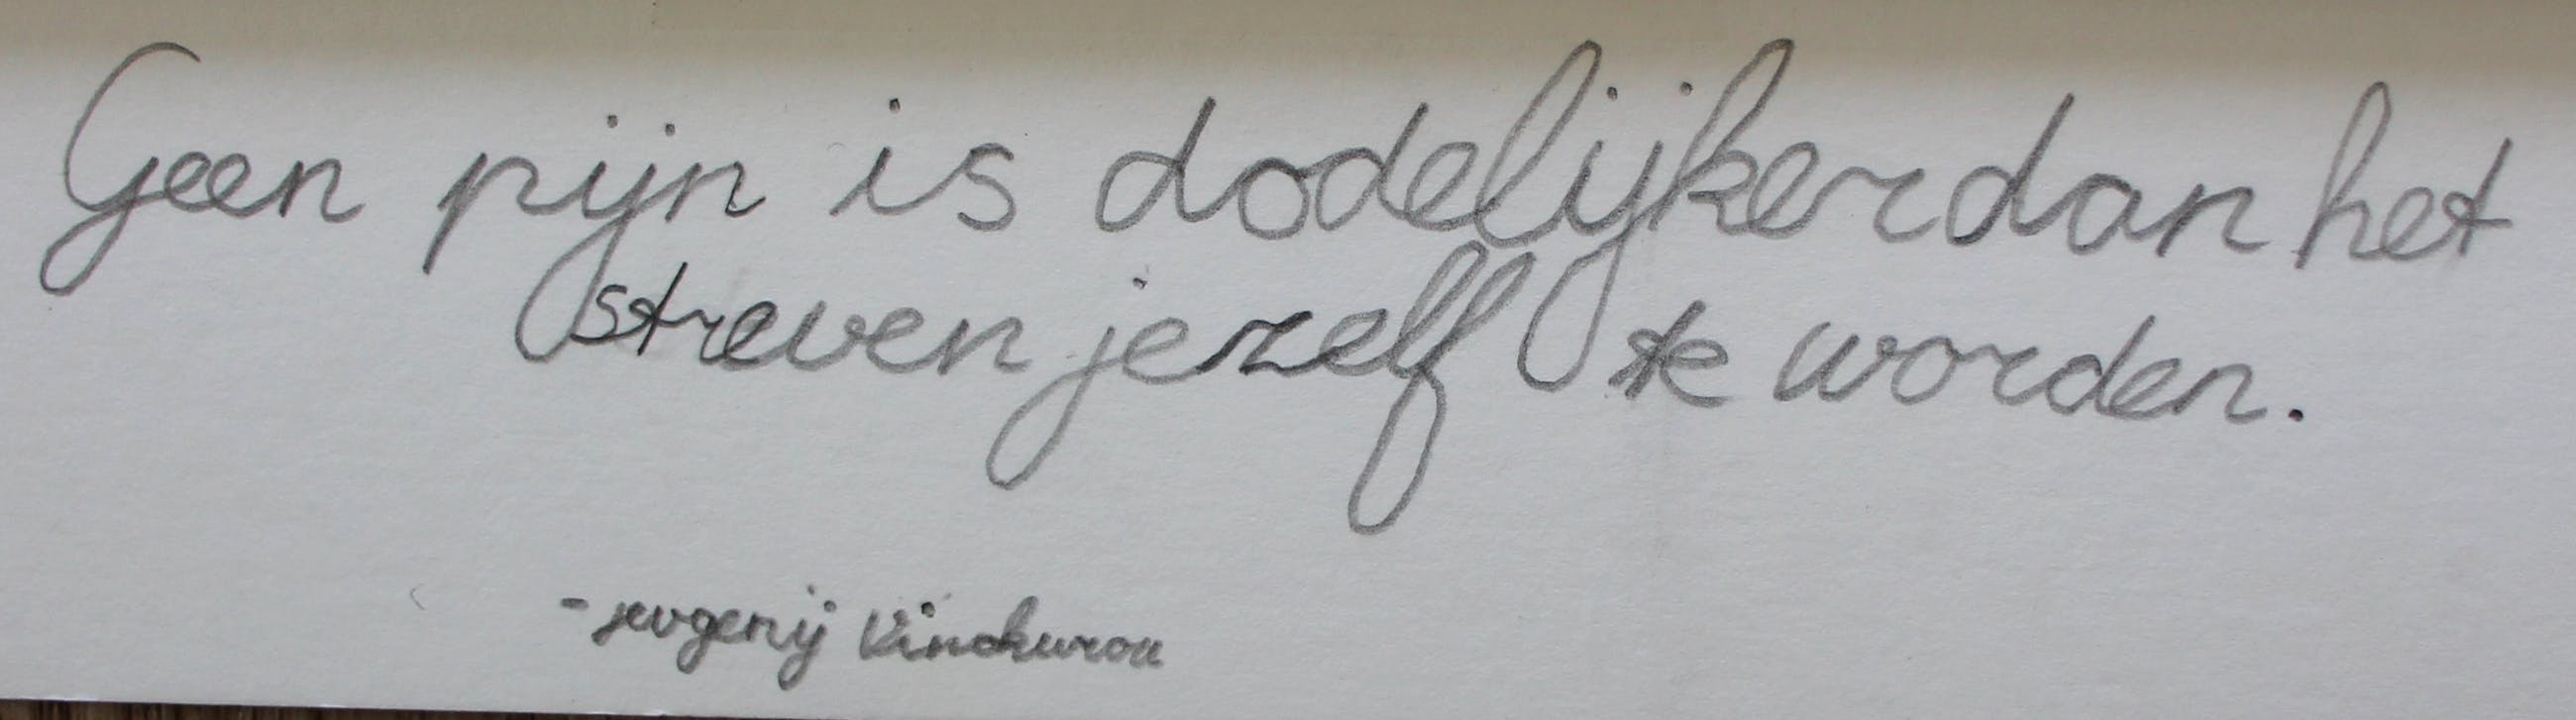 Geen pijn is dodelijker dan het
streven jezelf te worden.
- Jevgenij Vinokurov